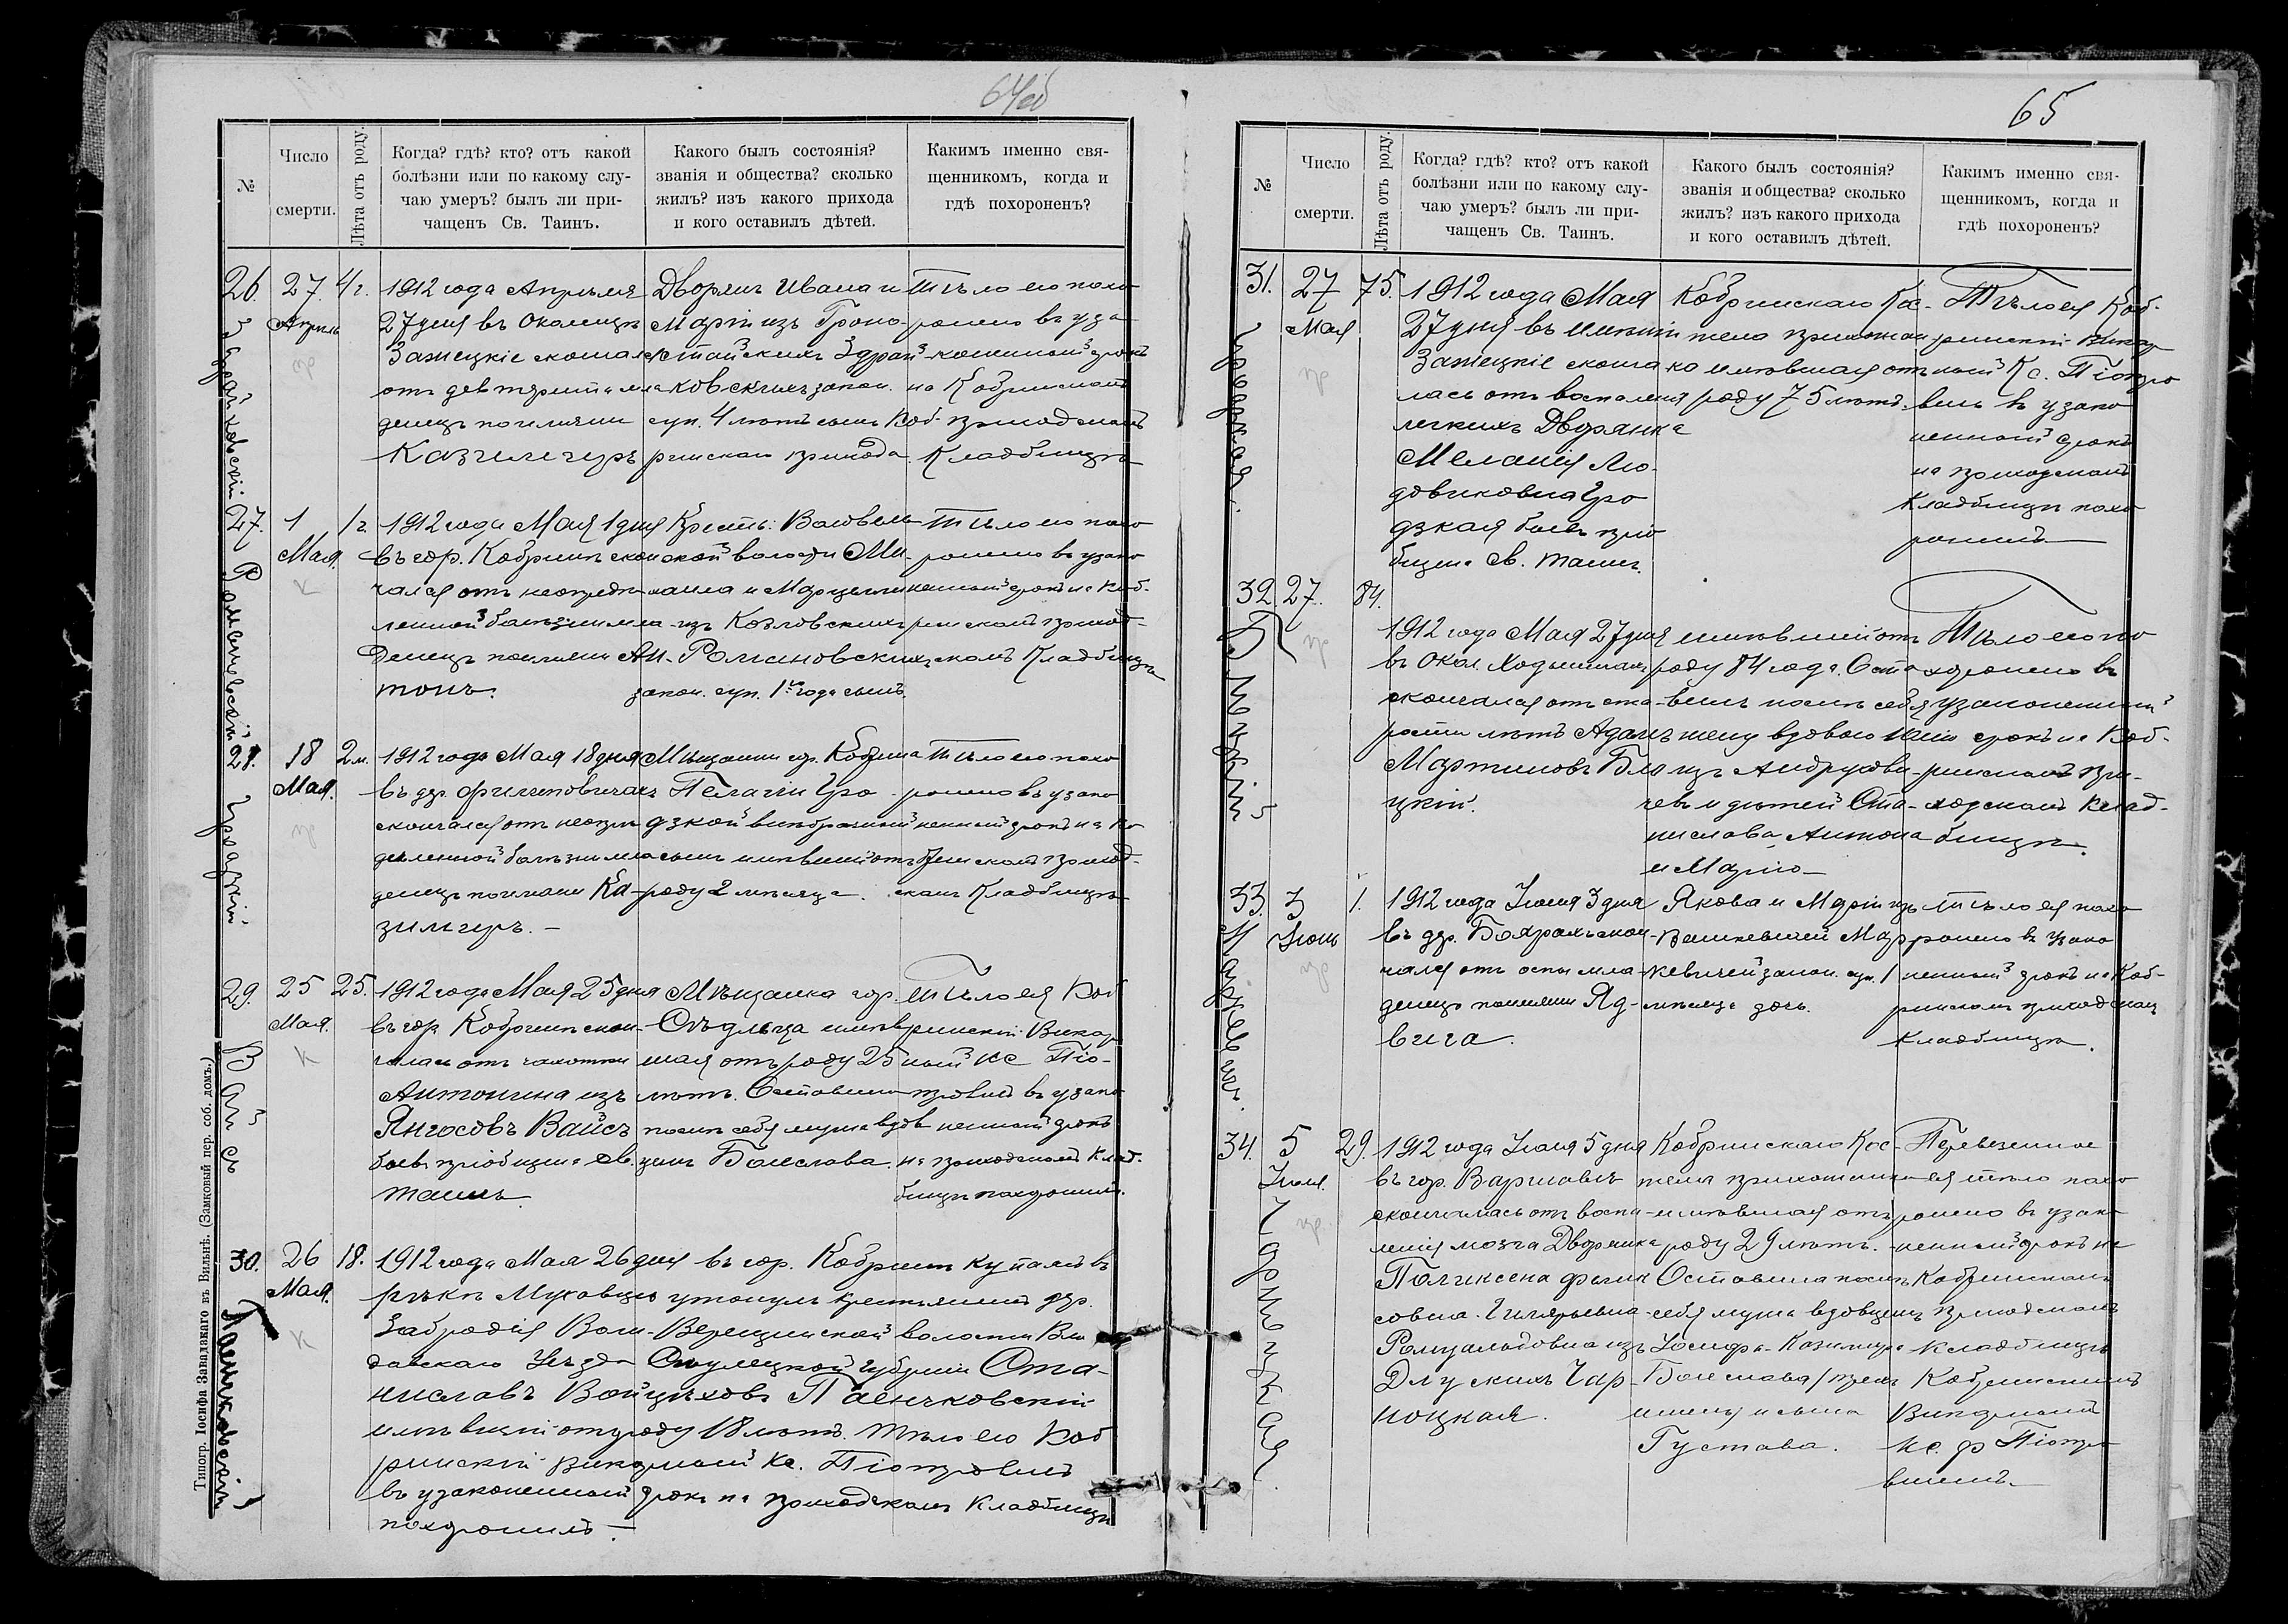 64об
№
Число смерти.
Лѣта отъ роду.
Когда? гдѣ? кто? отъ какой
болѣзни или по какому слу-
чаю умеръ? былъ ли при-
чащенъ Св. Таинъ.
Какого былъ состоянія?
званія и общества? сколько
жилъ? изъ какого прихода
и кого оставилъ дѣтей.
Какимъ именно свя-
щенникомъ, когда и
гдѣ похороненъ?
26.
Здрайковскій
27.
Апрѣль
пр
4 г.
1912 года Апрѣля
27 дня въ Околицѣ
Замецкіе сконал
отъ
денецъ по имени
Казимиръ
Дворянъ Ивана и
Маріи изъ
Здрай-
ковскихъ закон.
суп. 4 лѣтъ сынъ Коб-
ринскаго прихода.
Тѣло его похо
ронено въ уза
коненный срокъ
на Кобринскомъ
приходскомъ
Кладбищѣ
27.
Романовскій
1
Мая.
к
1 г.
1912 года Мая 1 дня
въ гор. Кобринѣ скон
чался отъ неопредѣ
ленной болѣзни мла
денецъ по имени Ан-
тонъ.
Крестьﾟ:
ской волости Ми-
хаила и Марцелли
изъ Козловскихъ
Романовскихъ
закон. суп. 1го года сынъ.
Тѣло его похо
ронено въ узако
ненный срокъ на Коб-
ринскомъ приход-
скомъ Кладбищѣ
28.
Гродзкій
18
Мая.
пр
2 м.
1912 года Мая 18 дня
въ дер. Филиповичахъ
скончался отъ неопре
дѣленной болѣзни мла
денецъ по имени Ка-
зимиръ. —
Мѣщанки гор. Кобрина
Пелагіи Гро-
дзкой внѣбрачный
сынъ имѣвшій отъ
роду 2 мѣсяца.
Тѣло его похо
ронено въ узако
ненный срокъ на Ко
бринскомъ приход-
скомъ Кладбищѣ
29.
Вайсъ
25
Мая.
к
25.
1912 года Мая 25 дня
въ гор. Кобринѣ скон-
чалась отъ чахотки
Антонина изъ
Янчосовъ Вайсъ
бывъ пріобщена Св.
Таинъ.
Мѣщанка гор.
Сѣдльца имѣв
шая отъ роду 25
лѣтъ. Оставила
послѣ себя мужа вдов
цемъ Болеслава.
Тѣло ея Коб
ринскій Викар
ный Кс. Піо-
тровичъ въ узако
ненный срокъ
на приходскомъ Клад-
бищѣ похоронилъ.
30.
Паенчковскій
26
Мая.
к
18.
1912 года Мая 26 дня въ гор. Кобринѣ купаясь въ
рѣкѣ Муховцѣ утонулъ крестьянинъ дер.
Забродія Воли-Верещинской волости Вло
давскаго Уѣзда Сѣдлецкой губерніи Ста-
ниславъ Войцѣховъ Паенчковскій
имѣвшій отъ роду 18 лѣтъ. Тѣло его Коб
ринскій Викарный Кс. Піотровичъ
въ узаконенный срокъ на приходскомъ Кладбищѣ
похоронилъ.
Типогр. Іосифа Завадзкаго въ Вильнѣ. (Замковый пер. соб. домъ.)
65
№
Число смерти.
Лѣта отъ роду.
Когда? гдѣ? кто? отъ какой
болѣзни или по какому слу-
чаю умеръ? былъ ли при-
чащенъ Св. Таинъ.
Какого былъ состоянія?
званія и общества? сколько
жилъ? изъ какого прихода
и кого оставилъ дѣтей.
Какимъ именно свя-
щенникомъ, когда и
гдѣ похороненъ?
31.
Гродзкая.
27
Мая
пр
75.
1912 года Мая
27 дня въ имѣніи
Замецкіе сконча
лась отъ воспаленія
легкихъ Дворянка
Меланія Лю-
довиковна Гро
дзкая бывъ прі
общена Св. Таинъ.
Кобринскаго Кос-
тела прихожан
ка имѣвшая отъ
роду 75 лѣтъ.
Тѣло ея Коб-
ринскій Викар
ный Кс. Піотро
вичъ въ узако
ненный срокъ
на приходскомъ
Кладбищѣ похо
ронилъ
32.
27.
пр
84.
1912 года Мая 27 дня
въ Окол.
скончался отъ ста-
рости лѣтъ Адамъ
Мартиновъ
цкій.
имѣвшій отъ
роду 84 года. Оста
вилъ послѣ себя
жену вдовою
изъ Андрухови-
чевъ и дѣтей Ста-
нислава, Антона
и Марію
Тѣло его по
хоронено въ
узаконенный
срокъ на Коб-
ринскомъ при-
ходскомъ Клад-
бищѣ.
33.
Маркевичъ.
3
Іюня
пр
1.
1912 года Іюня 3 дня
въ дер. Боярахъ скон-
чалась отъ оспы мла-
денецъ по имени Яд-
вига.
Якова и Маріи изъ
Мар
кевичей закон. суп. 1
мѣсяца дочь.
Тѣло ея похо
ронено въ узако
ненный срокъ на Коб-
ринскомъ приходскомъ
Кладбищѣ.
34.
5
Іюня.
пр.
29.
1912 года Іюня 5 дня
въ гор. Варшавѣ
скончалась отъ воспа-
ленія мозга Дворянка
Поликсена
Ромуальдовна изъ
Длускихъ Чар-
ноцкая.
Кобринскаго Кос-
тела прихожанка
имѣвшая отъ
роду 29 лѣтъ.
Оставила послѣ
себя мужа вдовцемъ
Іосифа-Казимира
Болеслава /трехъ
именъ/ и сына
Густава.
Перевезенное
ея тѣло похо
ронено въ узако
ненный срокъ на
Кобринскомъ
приходскомъ
Кладбищѣ
Кобринскимъ
Викарнымъ
Кс. Ф. Піотро
вичемъ.